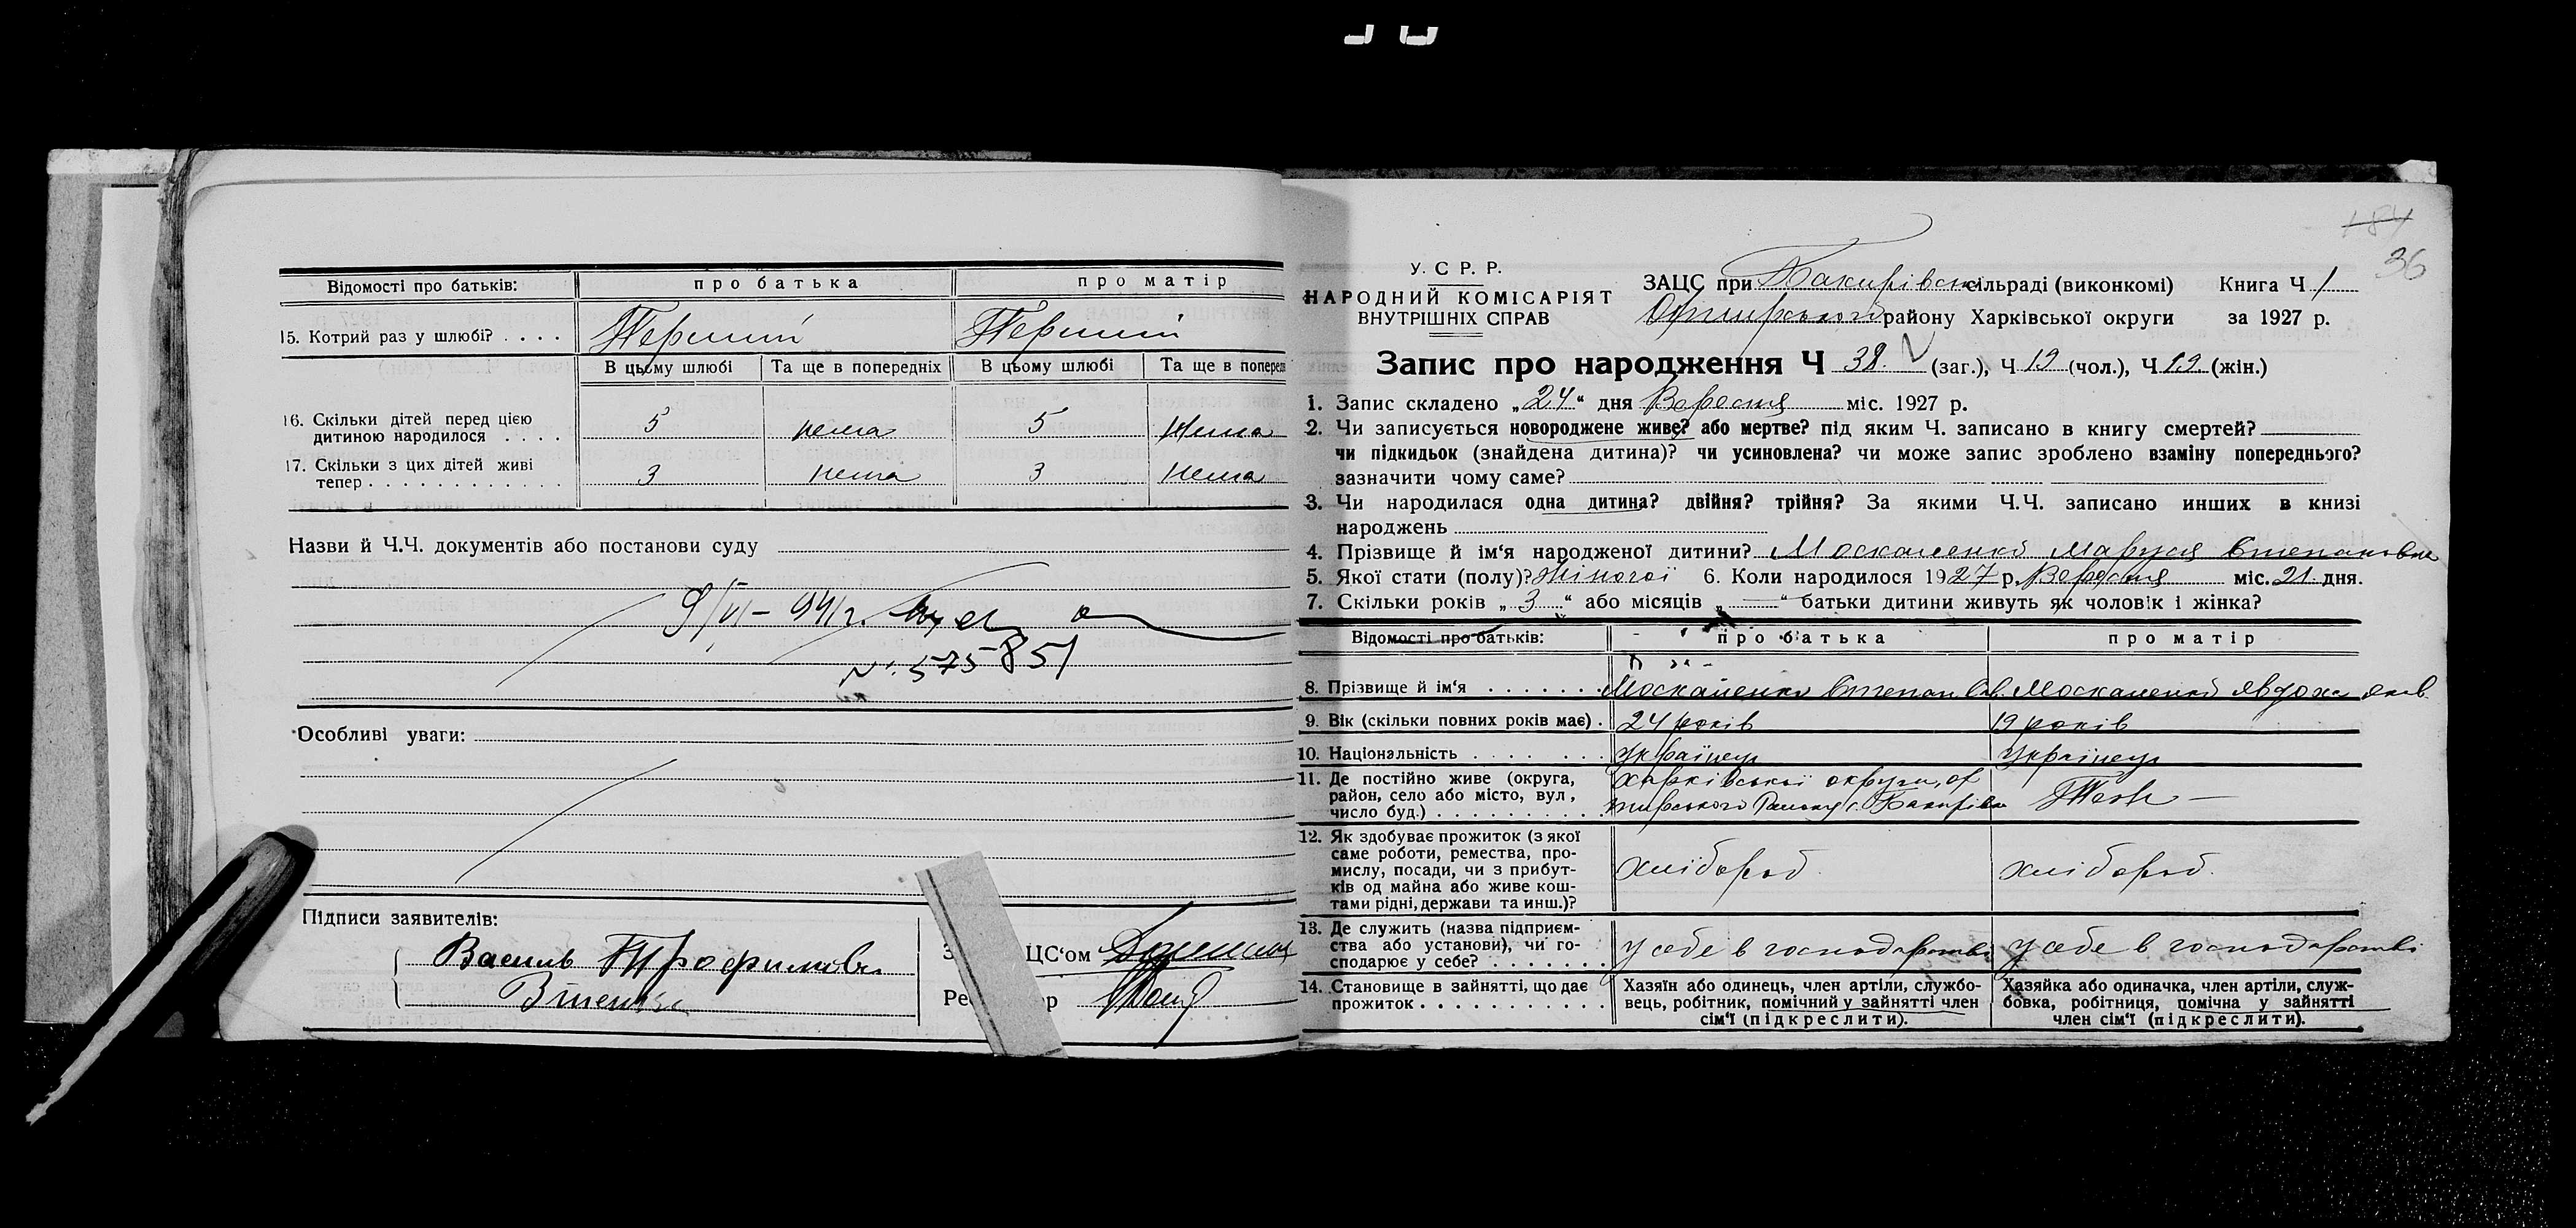 Відомості про батьків: про батька про матір
15. Котрий раз у шлюбі? . . . . Перший Перший
В цьому шлюбі Та ще в попередніх В цьому шлюбі Та ще в поперед
16. Скільки дітей перед цією
дитиною народилося . . . . 5 нема 5 нема
17. Скільки з цих дітей живі
тепер . . . . . . . . . . . . . 3 нема 3 нема
Назви й Ч.Ч. документів або постанови суду
№ 575851
Особливі уваги:
Підписи заявителів:
Василь Трофимови
ЦС'ом
36
У. С Р. Р.
НАРОДНИЙ КОМІСАРІЯТ
ВНУТРІШНІХ СПРАВ
ЗАЦС при Бакирівськ сільраді (виконкомі) Книга Ч 1
району Харківської округи за 1927 р.
Запис про народження Ч 38. (заг.), Ч 19 (чол.), Ч 19. (жін.)
1. Запис складено „24“ дня Вересня міс. 1927 р.
2. Чи записується новороджене живе? або мертве? під яким Ч. записано в книгу смертей?
чи підкидьок (знайдена дитина)? чи усиновлена? чи може запис зроблено взаміну попереднього?
зазначити чому саме?
3. Чи народилася одна дитина? двійня? трійня? За якими Ч.Ч. записано инших в книзі
народжень
4. Прізвище й ім‘я народженої дитини? Москаленко Маруся Степановна
5. Якої стати (полу)? жіночої 6. Коли народилося 1927 р. Вересня міс. 21 дня.
7. Скільки років „3“ або місяців „—“ батьки дитини живуть як чоловік і жінка?
Відомості про батьків: про батька про матір
8. Прізвище й ім‘я . . . . . . Москаленко Степан Москаленко Явдоха Яков.
9. Вік (скільки повних років має) . 24 років 19 років
10. Національність . . . . . . . Українец Українец
11. Де постійно живе (округа, Харківської округи, Ох
район, село або місто, вул, тирського Району с. Бакирівка Теж —
число буд.) . . . . . . . . . .
12. Як здобуває прожиток (з якої
саме роботи, ремества, про-
мислу, посади, чи з прибут- хлібороб. хлібороб.
ків од майна або живе кош-
тами рідні, держави та инш.)?
13. Де служить (назва підприєм-
ства або установи), чи го- у себе в господарстві у себе в господарстві
сподарює у себе? . . . . . . .
14. Становище в зайнятті, що дає Хазяїн або одинець, член артіли, службо- Хазяйка або одиначка, член артіли, служ-
прожиток . . . . . . . . . . . вець, робітник, помічний у зайнятті член бовка, робітниця, помічна у зайнятті
сім‘ї (підкреслити). член сім‘ї (підкреслити).